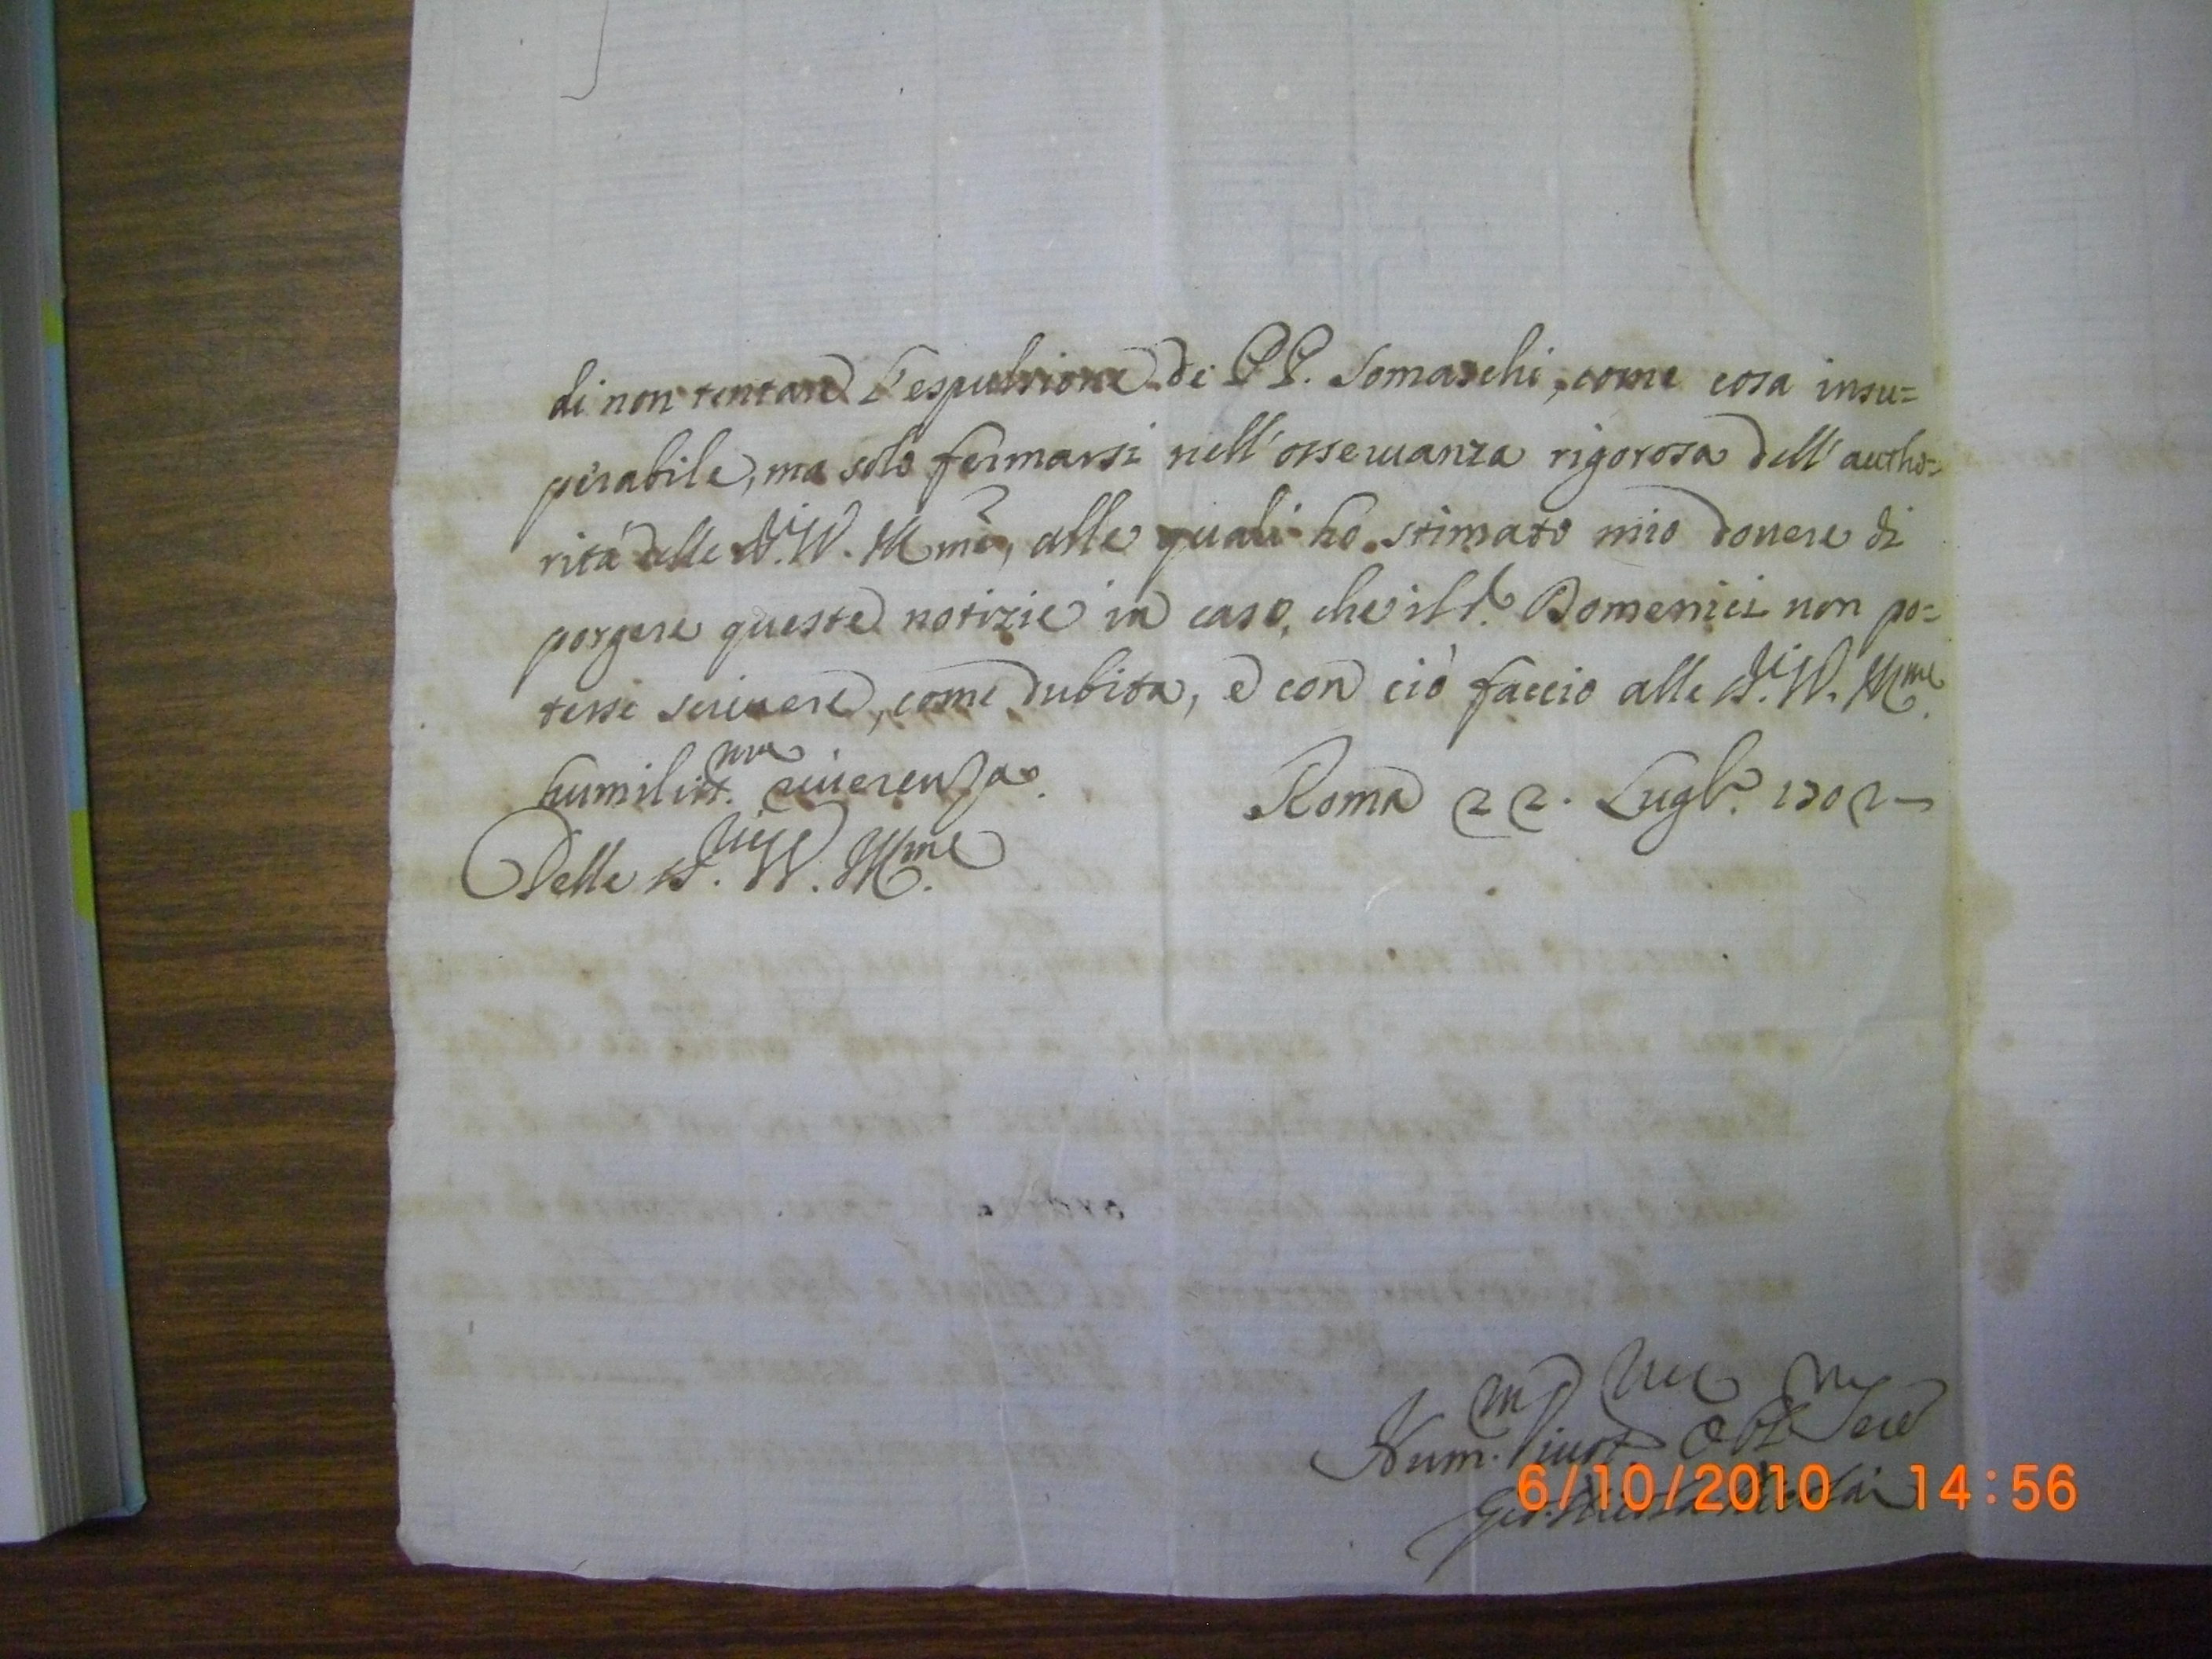 di non tentare l'espulsione de PP. Somaschi, come cosa insu=
perabile, ma solo fermarsi nell'osseruanza rigorosa dell'autho=
rità delle SS.rie VV. Ill.me, alle quali ho stimato mio douere di
porgere queste notizie in caso, che il S.r Domenici non po=
tesse scriuere, come dubita, e con ciò faccio alle SS.rie VV. Ill.me
humiliss.ma riuerenza. Roma 22. Lugl.o 1702
Delle SS.rie VV. Ill.me
Hum.mo Obl. Ser.e
6/10/2010 14:56